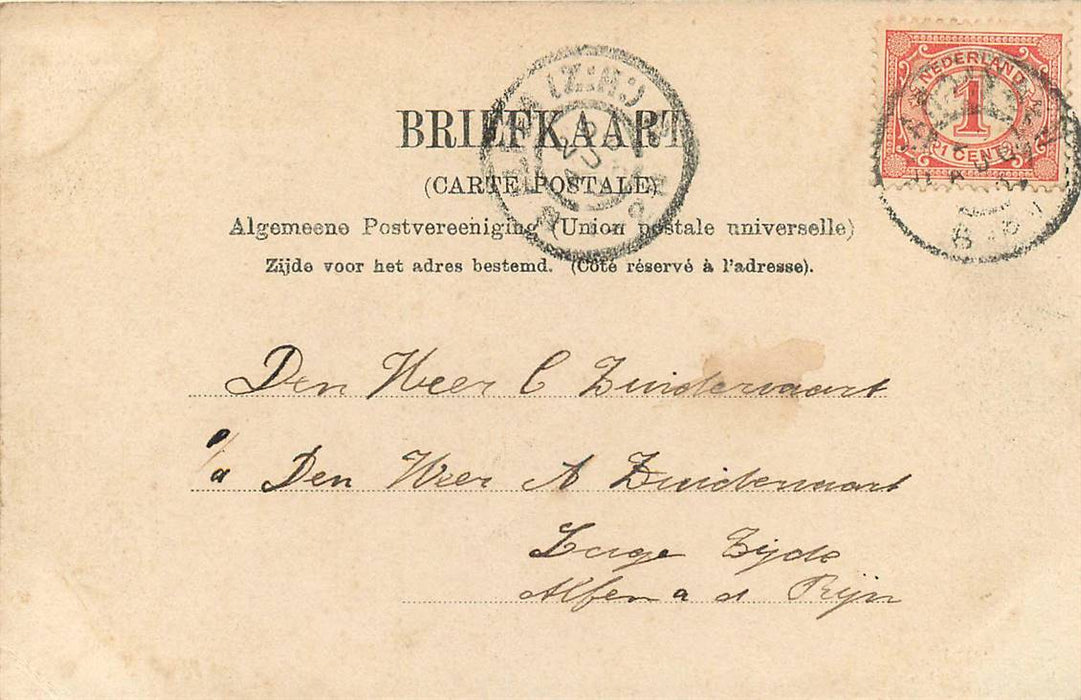 NEDERLAND
1
1 CENT
BRIEFKAART
(CARTE POSTALE)
Algemeene Postvereeniging (Union postale universelle)
Zijde voor het adres bestemd. (Côté réservé à l'adresse).
(Z:H:)
AUG
Den Heer C Zuidervaart
p/a Den Heer A Zuidervaart
Lage Zijde
Alfen a d Rijn